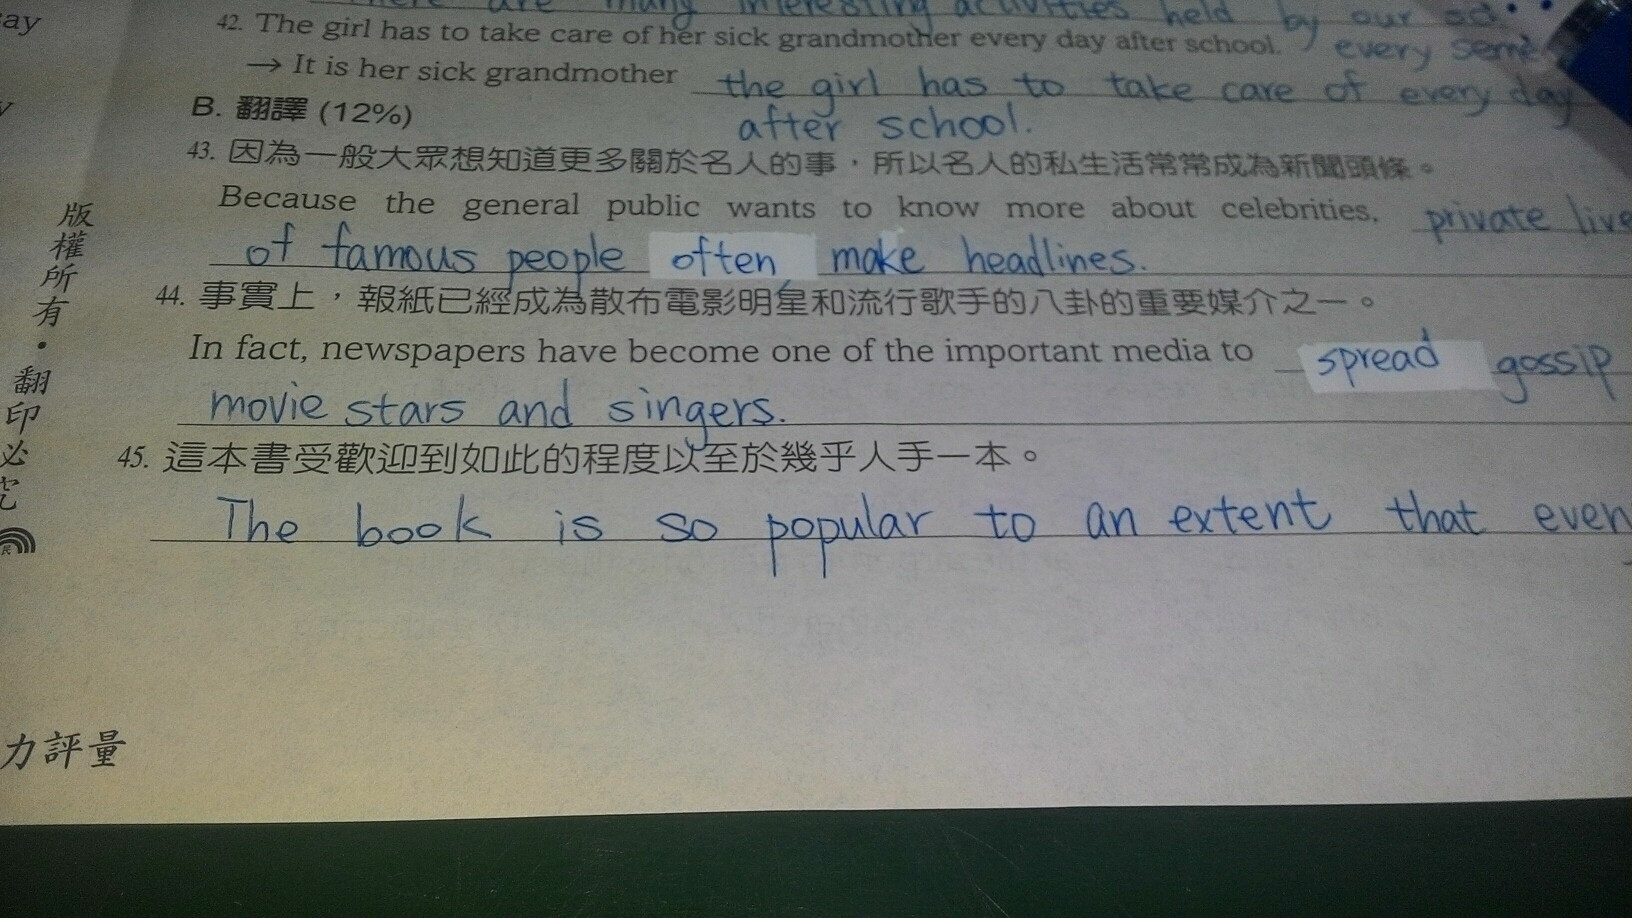 There are many interesting activities held by our
42. The girl has to take care of her sick grandmother every day after school. every
→ It is her sick grandmother the girl has to take care of every day
after school.
B. 翻譯 (12%)
43. 因為一般大眾想知道更多關於名人的事，所以名人的私生活常常成為新聞頭條。
Because the general public wants to know more about celebrities, private live
of famous people often make headlines.
44. 事實上，報紙已經成為散布電影明星和流行歌手的八卦的重要媒介之一。
In fact, newspapers have become one of the important media to spread gossip
movie stars and singers.
45. 這本書受歡迎到如此的程度以至於幾乎人手一本。
The book is so popular to an extent that even
版權所有・翻印必究
力評量